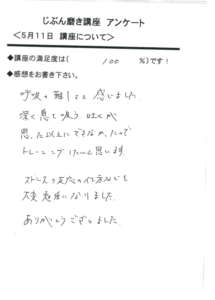 じぶん磨き講座 アンケート
＜5月11日 講座について＞
◆講座の満足度は( 100 %)です！
◆感想をお書き下さい。
呼吸の難しさを感じました
深く息を吸う、吐くが
思った以上にできなかったので
トレーニングしたいと思います。
ストレス反応の仕方なども
大変勉強になりました。
ありがとうございました。